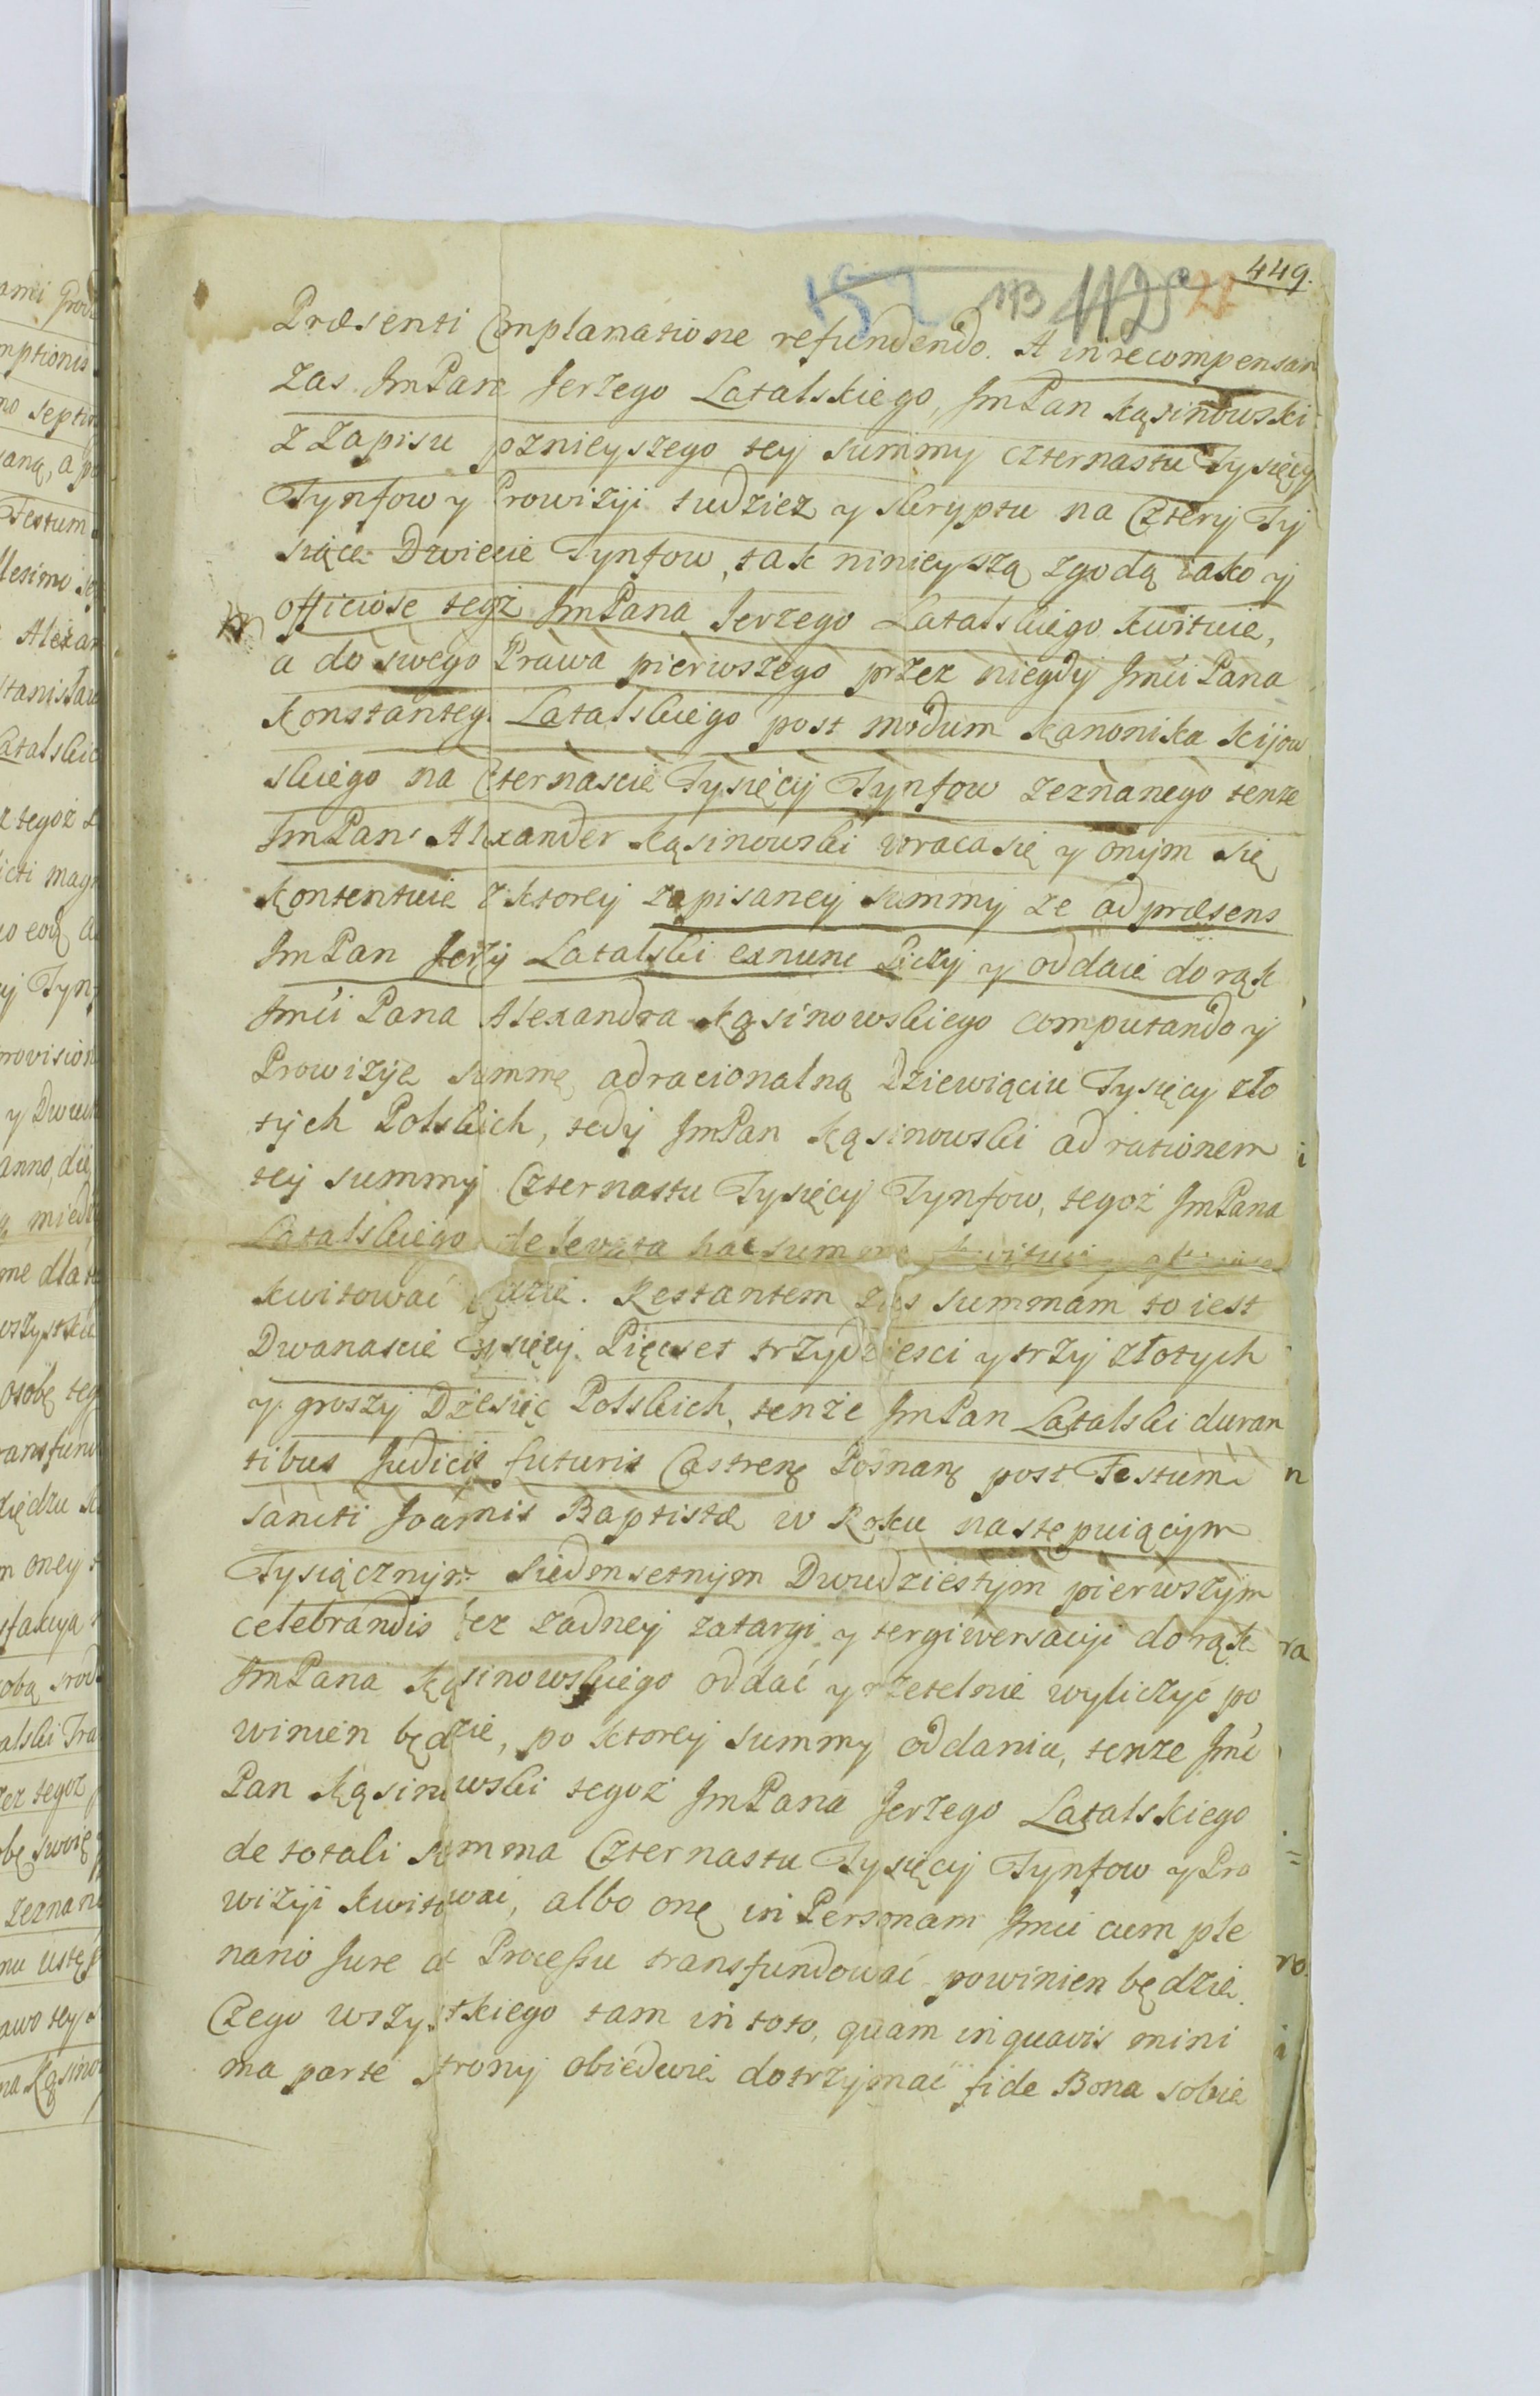 449.
157 113 112 27
Præsenti Complanatione refundendo. A in recompensam
Zas JmPana Jerzego Latalskiego, JmPan Kąsinowski
z Zapisu poznieyszego tey summy czternastu Tysięcy
Tynfow y Prowizyi tudziez y skryptu na Cztery Ty
siące Dwiescie Tynfow, tak ninieyszą zgodą iako y
officiose tegż JmPana Jerzego Latalskiego kwituie,
a do swego Prawa pierwszego przez niegdy Jmći Pana
Konstanteg. Latalskiego post modum Kanonika Kijow
skiego na Czternascie Tysięcy Tynfow zeznanego tenze
JmPan Alexander Kąsinowski wraca się y onym się
kontentuie z ktorey zapisaney summy ze ad præsens
JmPan Jerzy Latalski exnunc liczy y oddaie do rąk
Jmći Pana Alexandra Kąsinowskiego computando y
Prowizye summę adracionalną Dziewiąciu Tysięcy zło
tych Polskich, tedy JmPan Kąsinowski ad rationem
tey summy Czternastu Tysięcy Tynfow, tegoż JmPana
Latalskiego de levata hac summa kwituie y
kwitować będzie. Restantem zas summam to iest
Dwanascie Tysięcy Pięcset trzydziesci y trzy złotych
y groszy Dziesięc Polskich, tenże JmPan Latalski duran
tibus Judiciis futuris Castrenę Posnanę post Festum
sancti Joannis Baptistæ w Roku następuiącym
Tysiącznym Siedmsetnym Dwudziestym pierwszym
celebrandis bez żadney zatargi y tergiwersacyi do rąk
JmPana Kąsinowskiego oddać y rzetelnie wyliczyć po
winien będzie, po ktorey summy oddaniu, tenze Jmć
Pan Kąsinowski tegoż JmPana Jerzego Latalskiego
de totali summa Czternastu Tysięcy Tynfow y Pro
wizyi kwitować, albo onę in Personam Jmći cum ple
nario Jure et Processu transfundować powinien będzie.
Czego wszystkiego tam in toto, quam in quavis mini
ma parte strony obiedwie dotrzymać fide Bona sobie